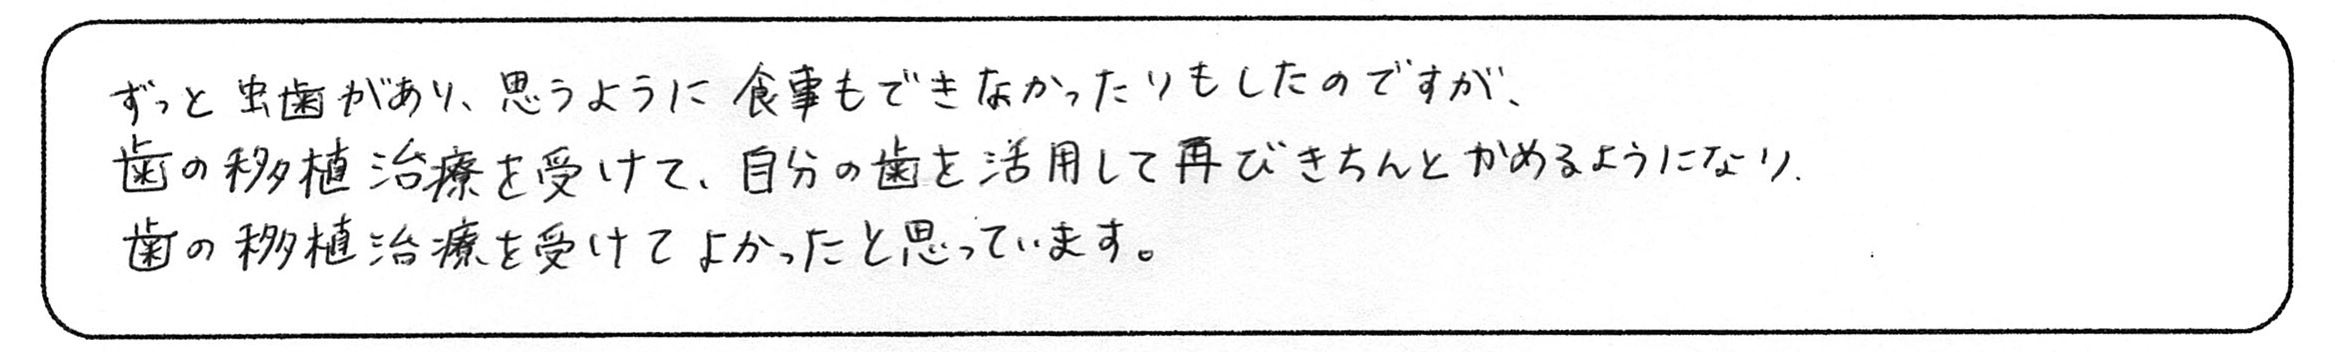 ずっと虫歯があり、思うように食事もできなかったりもしたのですが、
歯の移植治療を受けて、自分の歯を活用して再びきちんとかめるようになり、
歯の移植治療を受けてよかったと思っています。